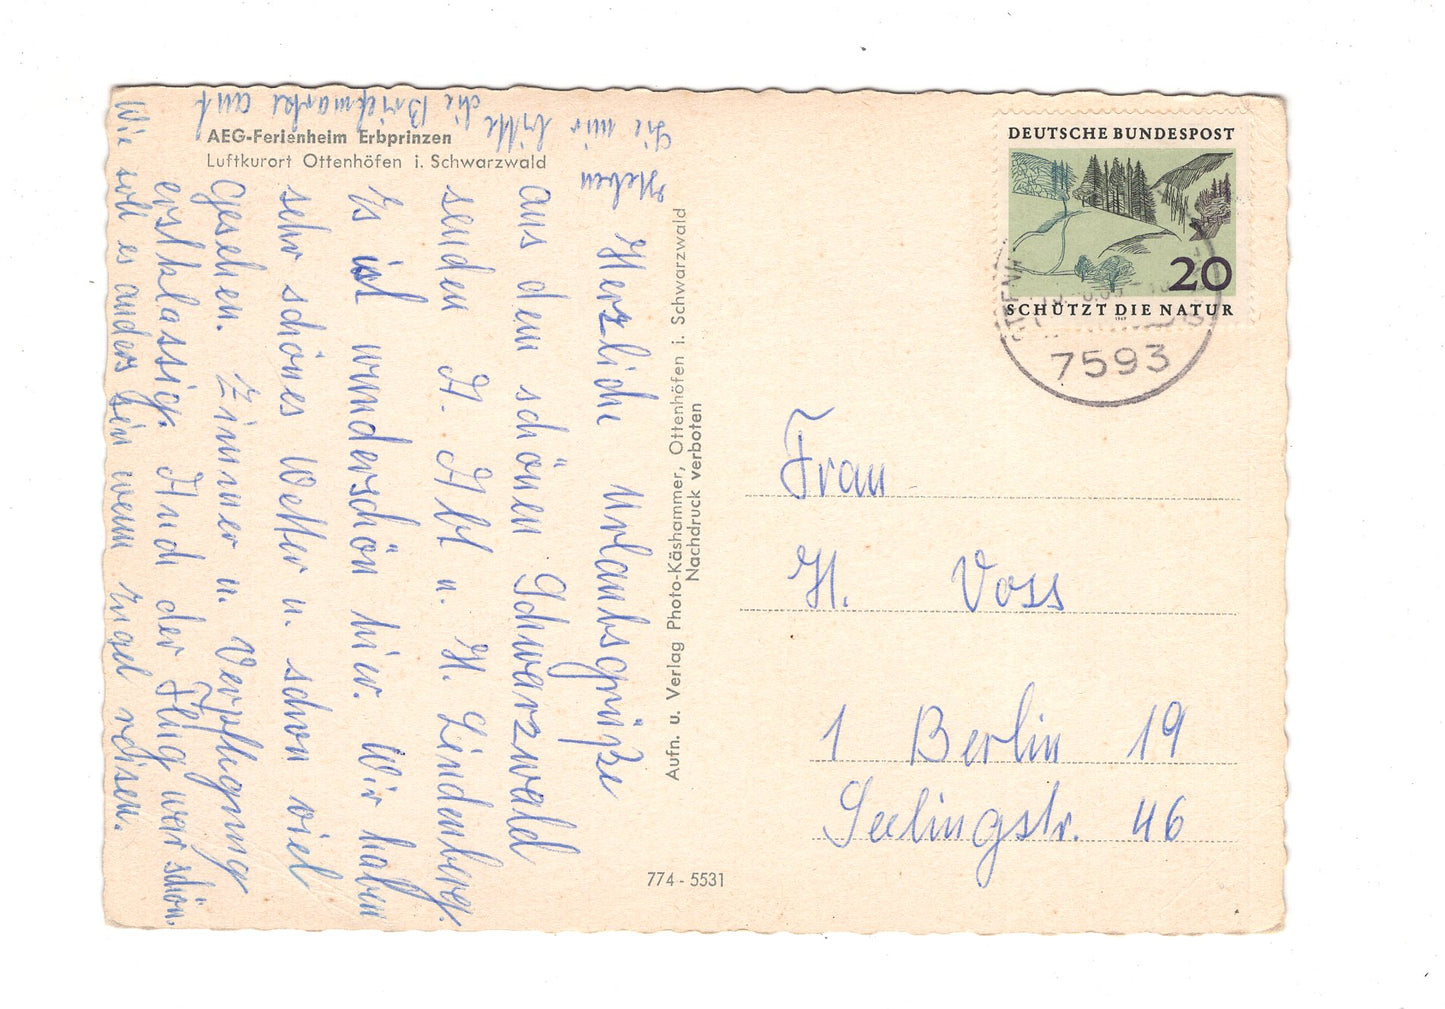 AEG-Ferienheim Erbprinzen
Luftkurort Ottenhöfen i. Schwarzwald
Herzliche Urlaubsgrüße
aus dem schönen Schwarzwald
senden A. Abt u. H. Lindenberg.
Es ist wunderschön hier. Wir haben
sehr schönes Wetter u. schon viel
gesehen. Zimmer u. Verpflegung
erstklassig. Auch der Flug war schön.
Wie soll es anders sein wenn Engel reisen.
Heben
Sie mir bitte
die Briefmarke auf
Aufn. u. Verlag Photo-Käshammer, Ottenhöfen i. Schwarzwald
Nachdruck verboten
774 - 5531
DEUTSCHE BUNDESPOST
20
SCHÜTZT DIE NATUR
1969
7593
Frau
H. Voss
1 Berlin 19
Seelingstr. 46